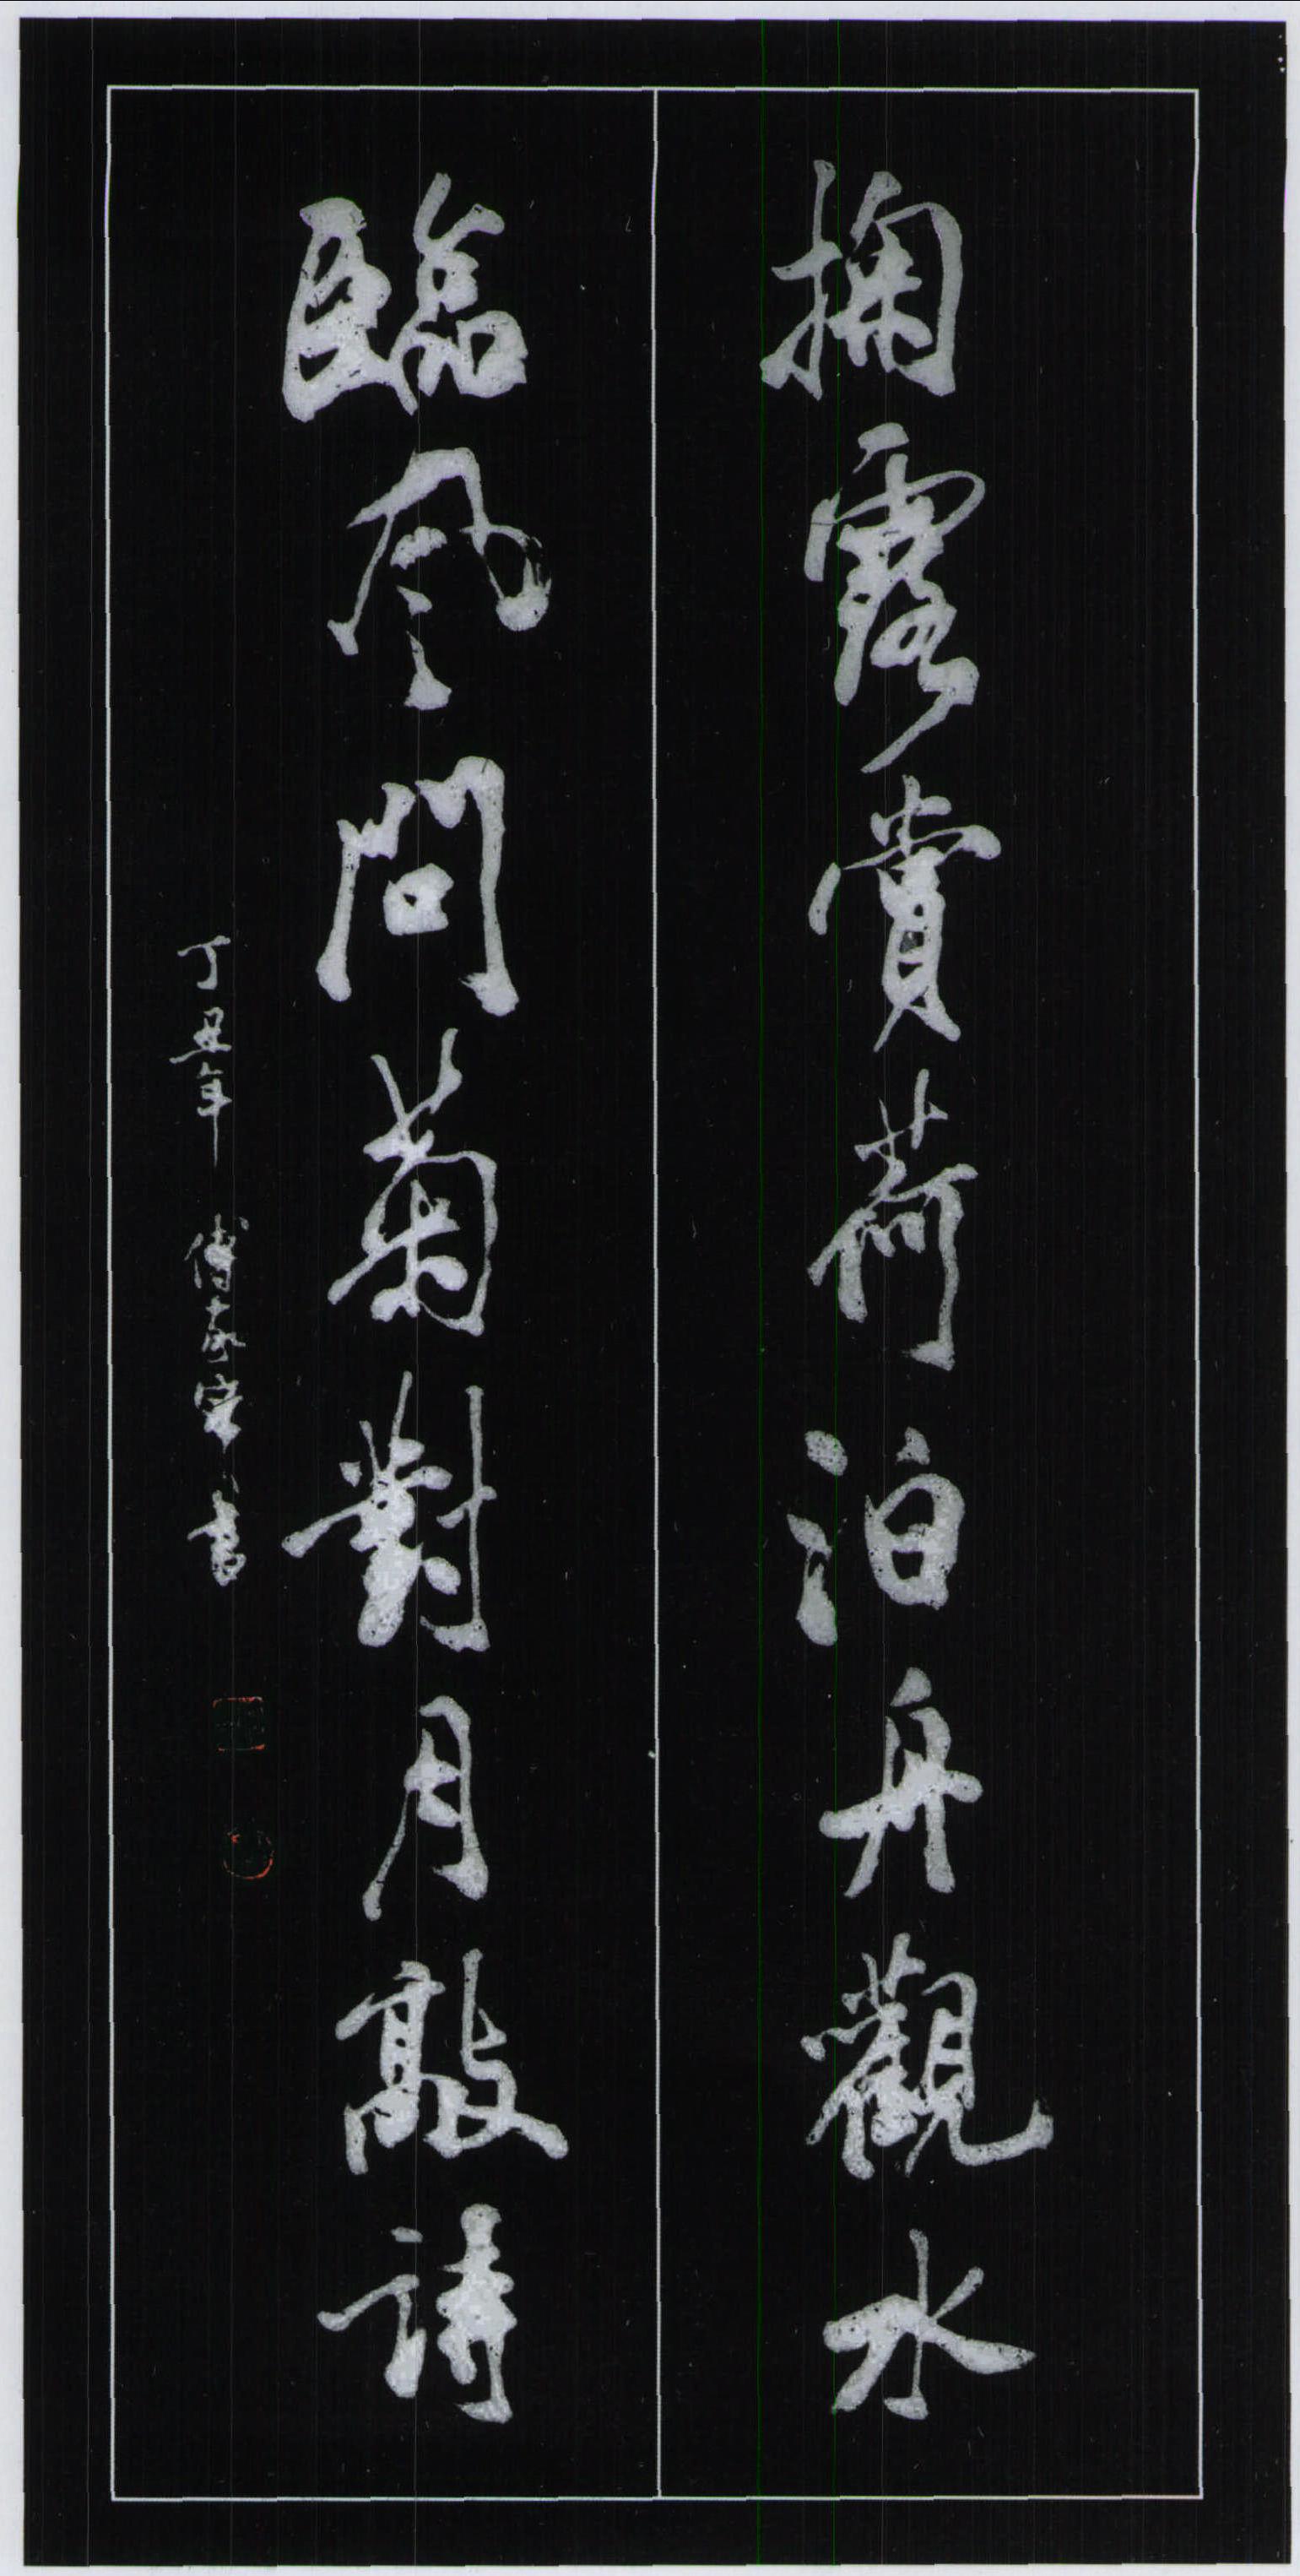 掬露賞荷泊舟觀水
臨風問菊對月敲詩
丁丑年 傅家寶書